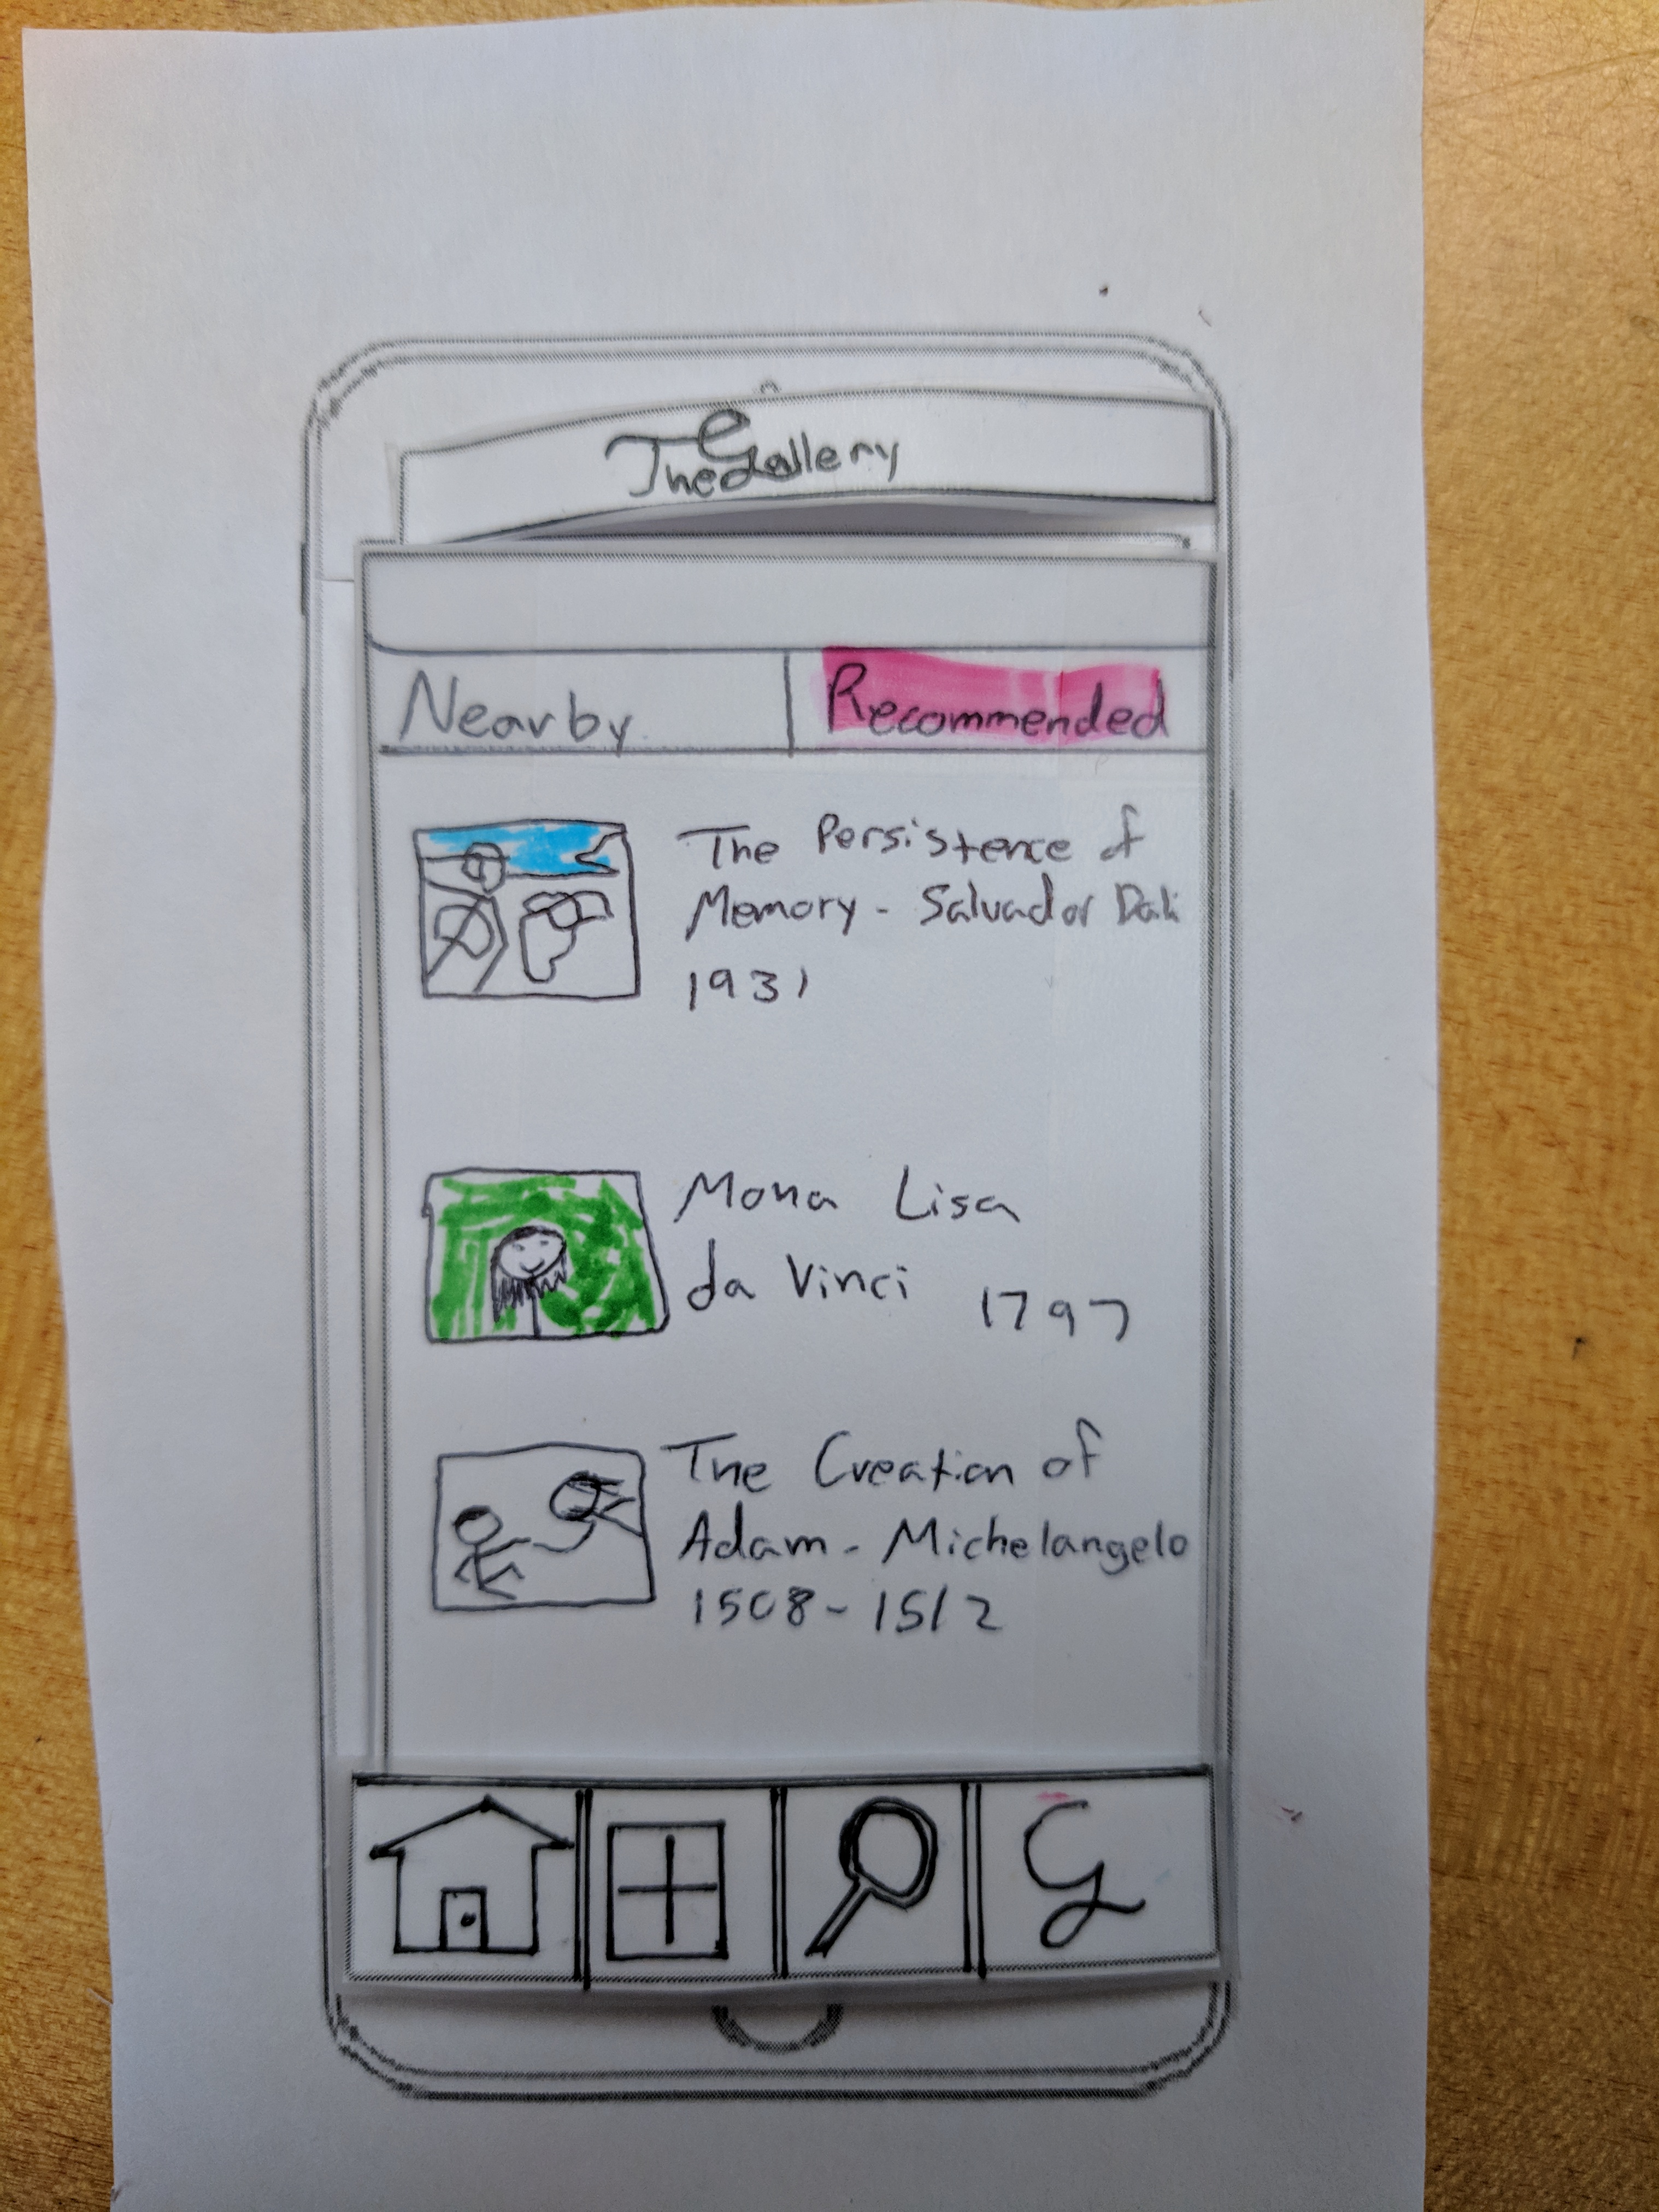 The Gallery
Nearby
Recommended
The Persistence of
Memory - Salvador Dali
1931
Mona Lisa
da Vinci 1797
The Creation of
Adam - Michelangelo
1508 - 1512
G